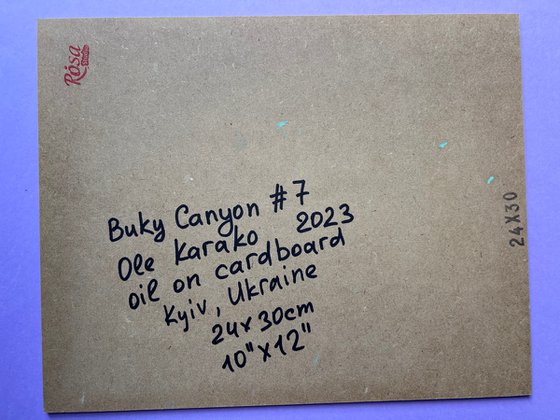 Rósa
Studio
Buky Canyon #7
Ole Karako 2023
oil on cardboard
Kyiv, Ukraine
24x30cm
10"x12"
24X30